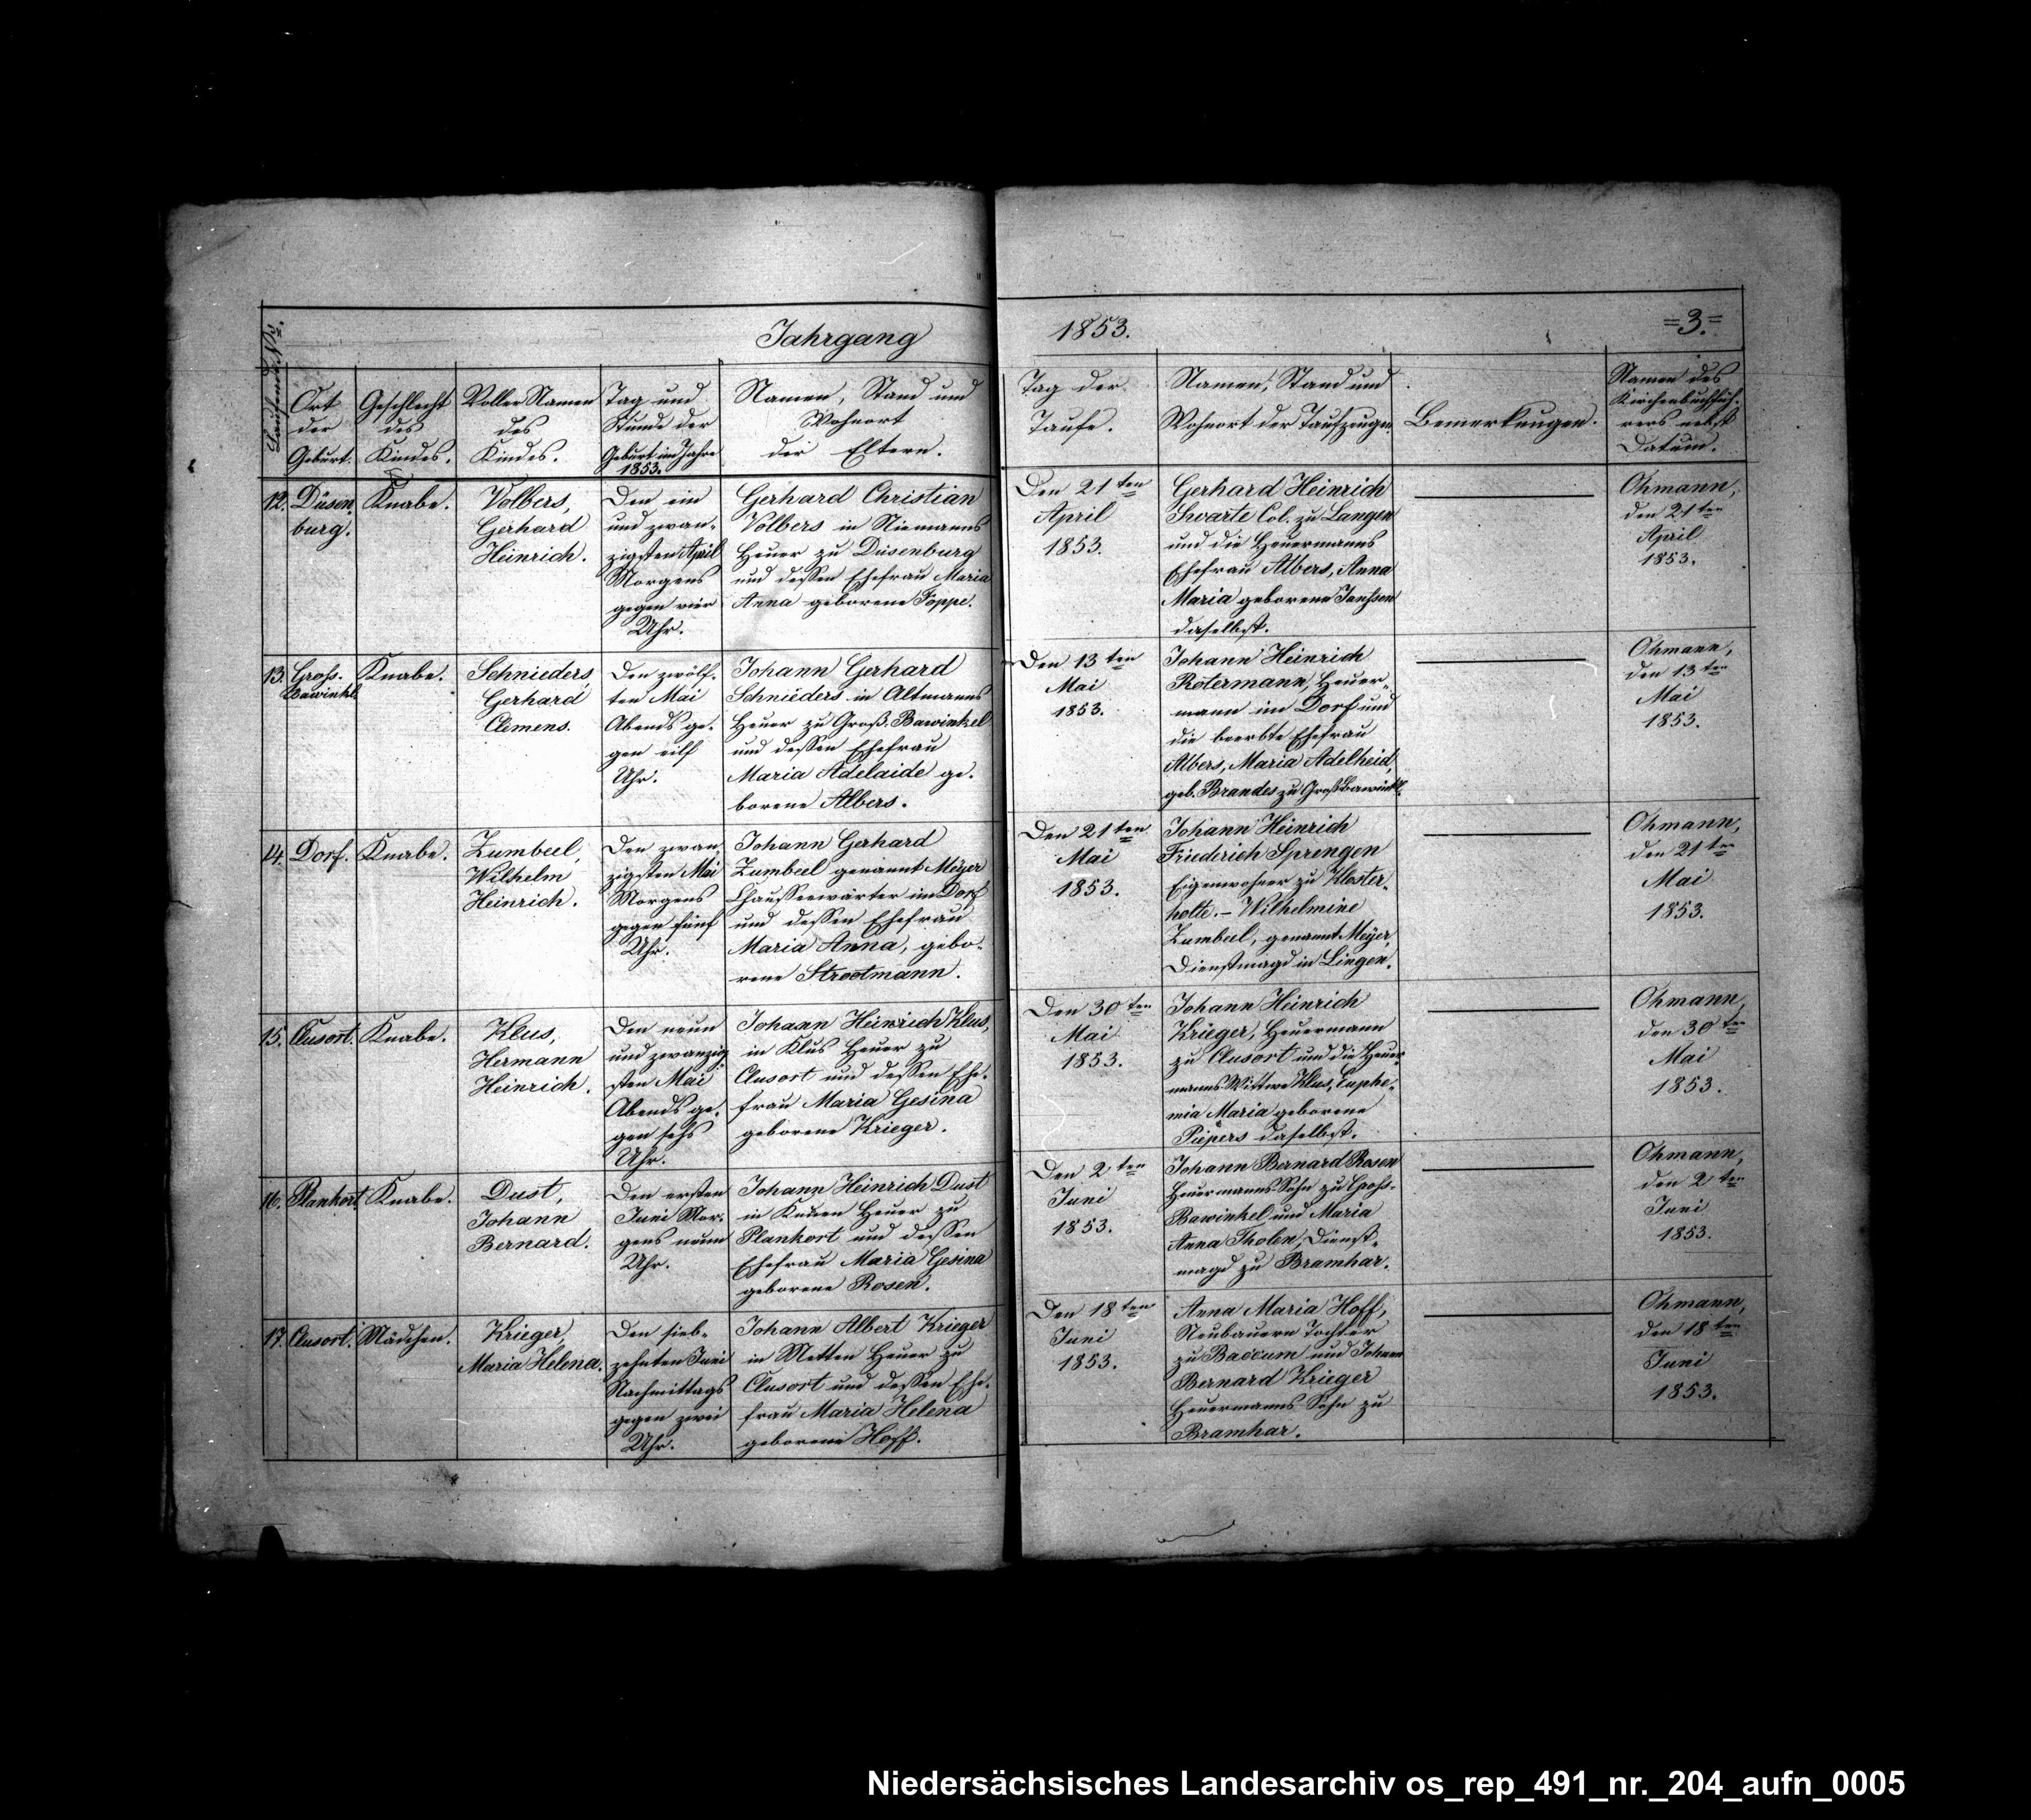 Jahrgang 1853. =3.=
Laufende No.
Ort
der
Geburt.
Geschlecht
des
Kindes.
Voller Namen
des
Kindes.
Tag und
Stunde der
Geburt im Jahre
1853.
Namen, Stand und
Wohnort
der Eltern.
Tag der
Taufe.
Namen, Stand und
Wohnort der Taufzeugen.
Bemerkungen.
Namen des
Kirchenbuchfüh-
rers nebst
Datum.
12.
Düsen-
burg.
Knabe.
Volbers,
Gerhard
Heinrich.
Den ein
und zwan-
zigsten April
Morgens
gegen vier
Uhr.
Gerhard Christian
Volbers in Niemanns
Heuer zu Düsenburg
und dessen Ehefrau Maria
Anna geborene Foppe.
Den 21ten
April
1853.
Gerhard Heinrich
Swarte Col. zu Langen
und die Heuermanns
Ehefrau Albers, Anna
Maria geborene Janssen
daselbst.
Ohmann,
den 21ten
April
1853.
13.
Gross-
Bawinkel
Knabe.
Schnieders
Gerhard
Clemens.
Den zwölf-
ten Mai
Abends ge-
gen eilf
Uhr.
Johann Gerhard
Schnieders in Altmanns
Heuer zu Groß. Bawinkel
und dessen Ehefrau
Maria Adelaide ge-
borene Albers.
Den 13ten
Mai
1853.
Johann Heinrich
Rotermann, Heuer-
mann im Dorf und
die beerbte Ehefrau
Albers, Maria Adelheid,
geb. Brandes zu Großbawinkel.
Ohmann,
den 13ten
Mai
1853.
14.
Dorf.
Knabe.
Zumbeel,
Wilhelm
Heinrich.
Den zwan-
zigsten Mai
Morgens
gegen fünf
Uhr.
Johann Gerhard
Zumbeel genannt Meÿer
Chausseewärter im Dorf
und dessen Ehefrau
Maria Anna, gebo-
rene Strootmann.
Den 21ten
Mai
1853.
Johann Heinrich
Friederich Sprengen
Eigenwohner zu Kloster-
holte. – Wilhelmine
Zumbeel, genannt Meÿer,
Dienstmagd in Lingen.
Ohmann,
den 21ten
Mai
1853.
15.
Clusort.
Knabe.
Klus,
Hermann
Heinrich.
Den neun
und zwanzig-
sten Mai
Abends ge-
gen sechs
Uhr.
Johann Heinrich Klus,
in Klus Heuer zu
Clusort und dessen Ehe-
frau Maria Gesina
geborene Krieger.
Den 30ten
Mai
1853.
Johann Heinrich
Krieger, Heuermann
zu Clusort und die Heuer-
manns Wittwe Klus, Euphe-
mia Maria geborene
Piepers daselbst.
Ohmann,
den 30ten
Mai
1853.
16.
Plankort
Knabe.
Dust,
Johann
Bernard.
Den ersten
Juni Mor-
gens neun
Uhr.
Johann Heinrich Dust
in Heuer zu
Plankort und dessen
Ehefrau Maria Gesina
geborene Rosen.
Den 2ten
Juni
1853.
Johann Bernard Rosen
Heuermanns Sohn zu Gross-
Bawinkel und Maria
Anna Tholen, Dienst-
magd zu Bramhar.
Ohmann,
den 2ten
Juni
1853.
17.
Clusort.
Mädchen.
Krieger,
Maria Helena.
Den sieb-
zehnten Juni
Nachmittags
gegen zwei
Uhr.
Johann Albert Krieger
in Metten Heuer zu
Clusort und dessen Ehe-
frau Maria Helena
geborene Hoff.
Den 18ten
Juni
1853.
Anna Maria Hoff,
Neubauern Tochter
zu Baccum und Johann
Bernard Krieger
Heuermanns Sohn zu
Bramhar.
Ohmann,
den 18ten
Juni
1853.
Niedersächsisches Landesarchiv os_rep_491_nr._204_aufn_0005